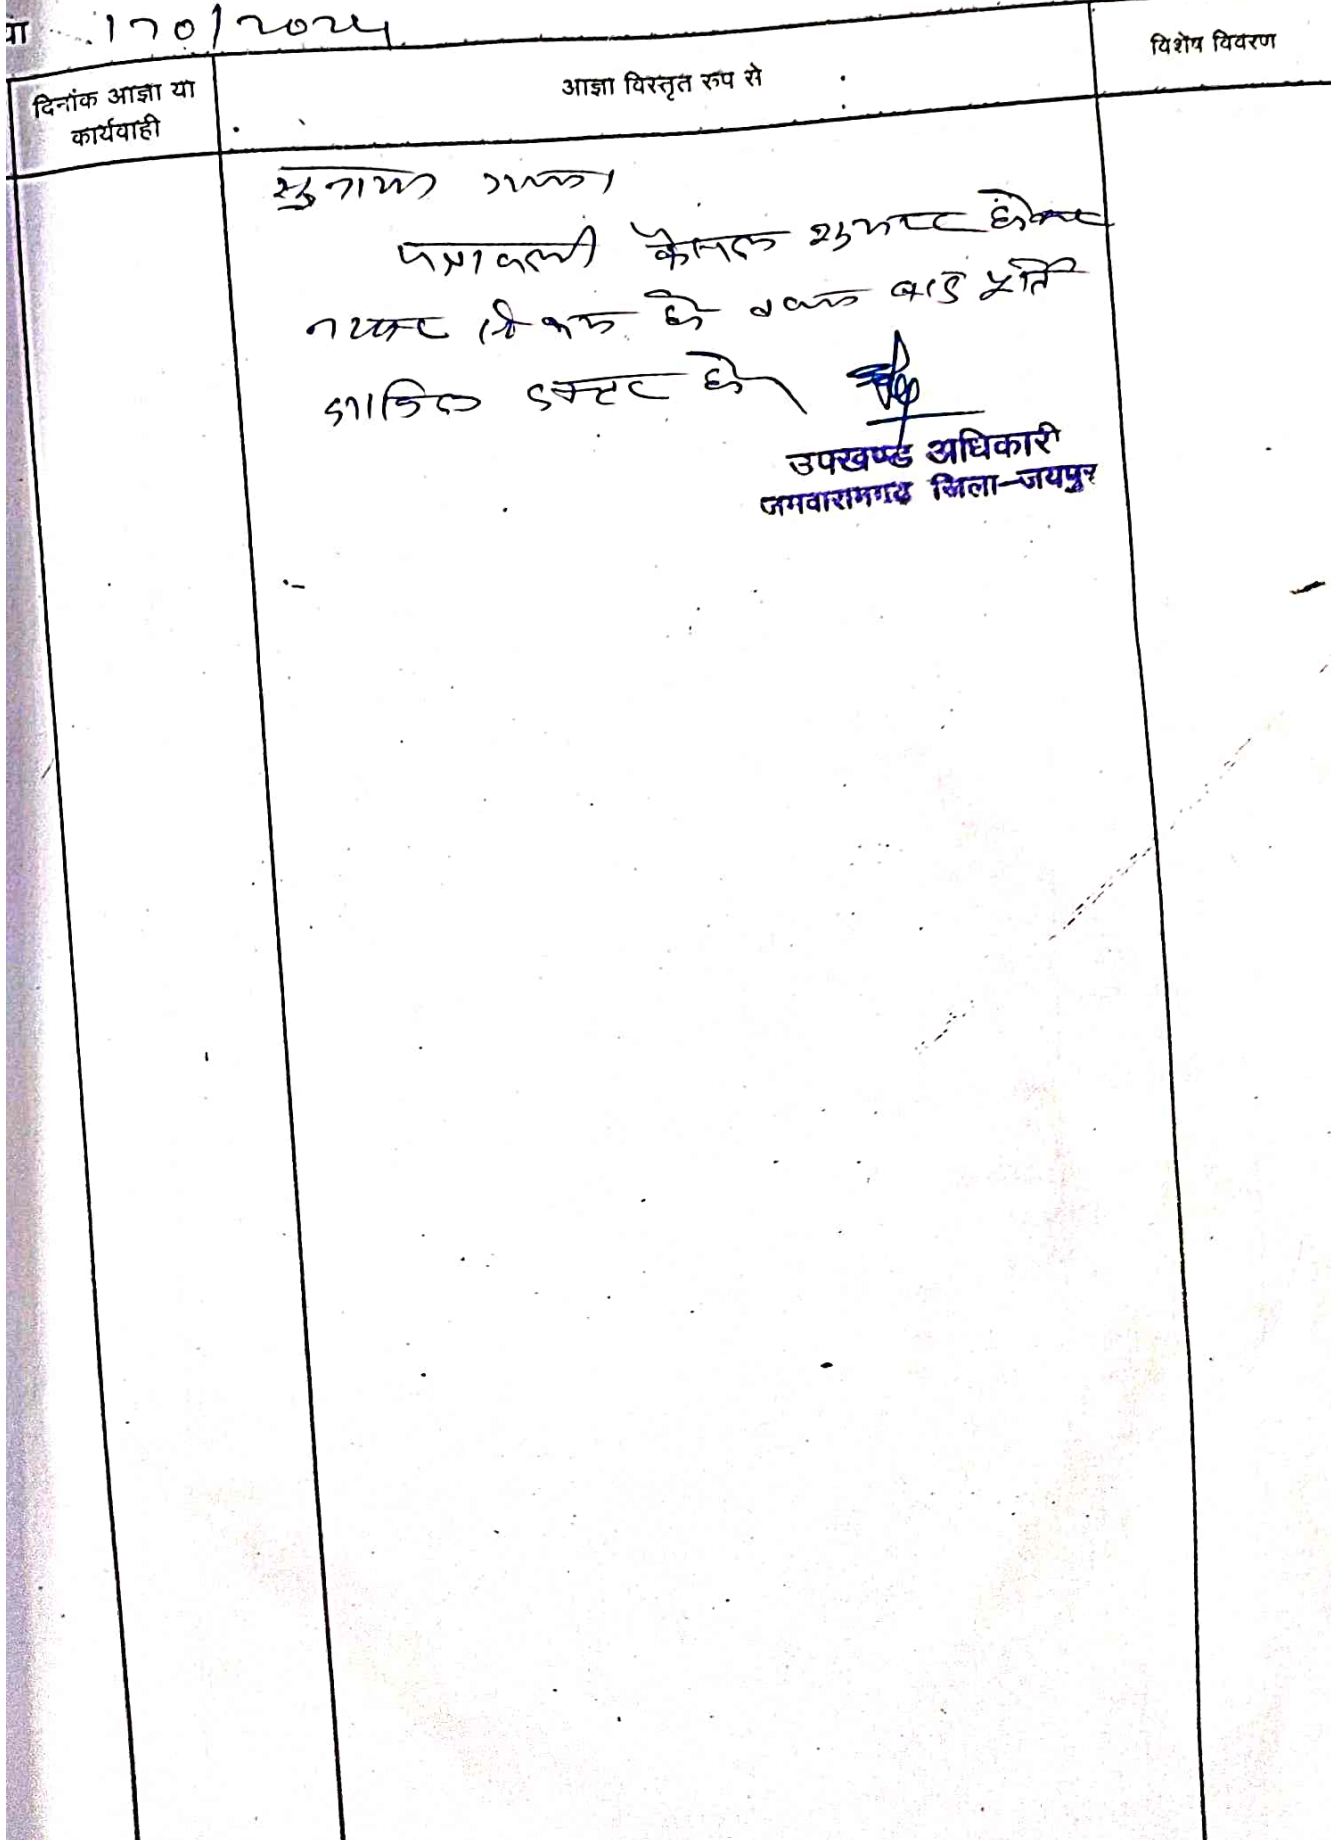 या 170/2024
दिनांक आज्ञा या
कार्यवाही
आज्ञा विस्तृत रूप से
विशेष विवरण
सुनाया गया।
पत्रावली फैसल शुमार होकर
नम्बर से कम हो बाद पूर्ति
दाखिल दफ्तर हो
उपखण्ड अधिकारी
जमवारामगढ जिला-जयपुर